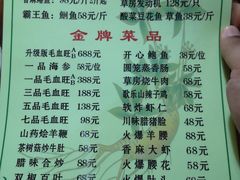 霸王鱼: 鮰鱼58元/斤 酸菜豆花鱼 草鱼38元/斤
金牌菜品
升级版毛血旺 688元 开心鲍鱼 38元/位
一品海参 58元/位 圆笼蒸香肠 58元
一品毛血旺 388元 草房烧牛肉 68元
三品毛血旺 138元 歌乐山辣子鸡 58元
五品毛血旺 118元 软炸虾仁 68元
七品毛血旺 98元 川味腊猪脸 68元
山药烩羊鞭 68元 火爆羊腰 88元
茶树菇炒牛肚 58元 香麻大虾 68元
腊味合炒 58元 火爆腰花 58元
双椒百叶 火爆肚头